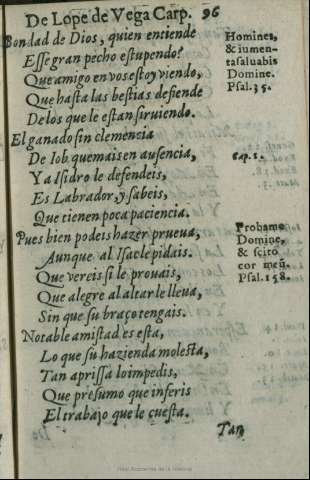 De Lope de Vega Carp. 96
Bondad de Dios, quien entiende
Esse gran pecho estupendo?
Que amigo en vos estoy viendo,
Que hasta las bestias defiende
De los que le estan siruiendo.
El ganado sin clemencia
De Iob quemais en ausencia,
Y a Isidro le defendeis,
Es Labrador, y sabeis,
Que tienen poca paciencia.
Pues bien podeis hazer prueua,
Aunque al Isac le pidais.
Que vereis si le prouais,
Que alegre al altar le lleua,
Sin que su braço tengais.
Notable amistad es esta,
Lo que su hazienda molesta,
Tan aprissa lo impedis,
Que presumo que inferis
El trabajo que le cuesta.
Tan
Homines,
& iumen-
ta saluabis
Domine.
Psal. 35.
Cap. 1.
Probame
Domine,
& scito
cor meũ.
Psal. 158.
Real Academia de la Historia